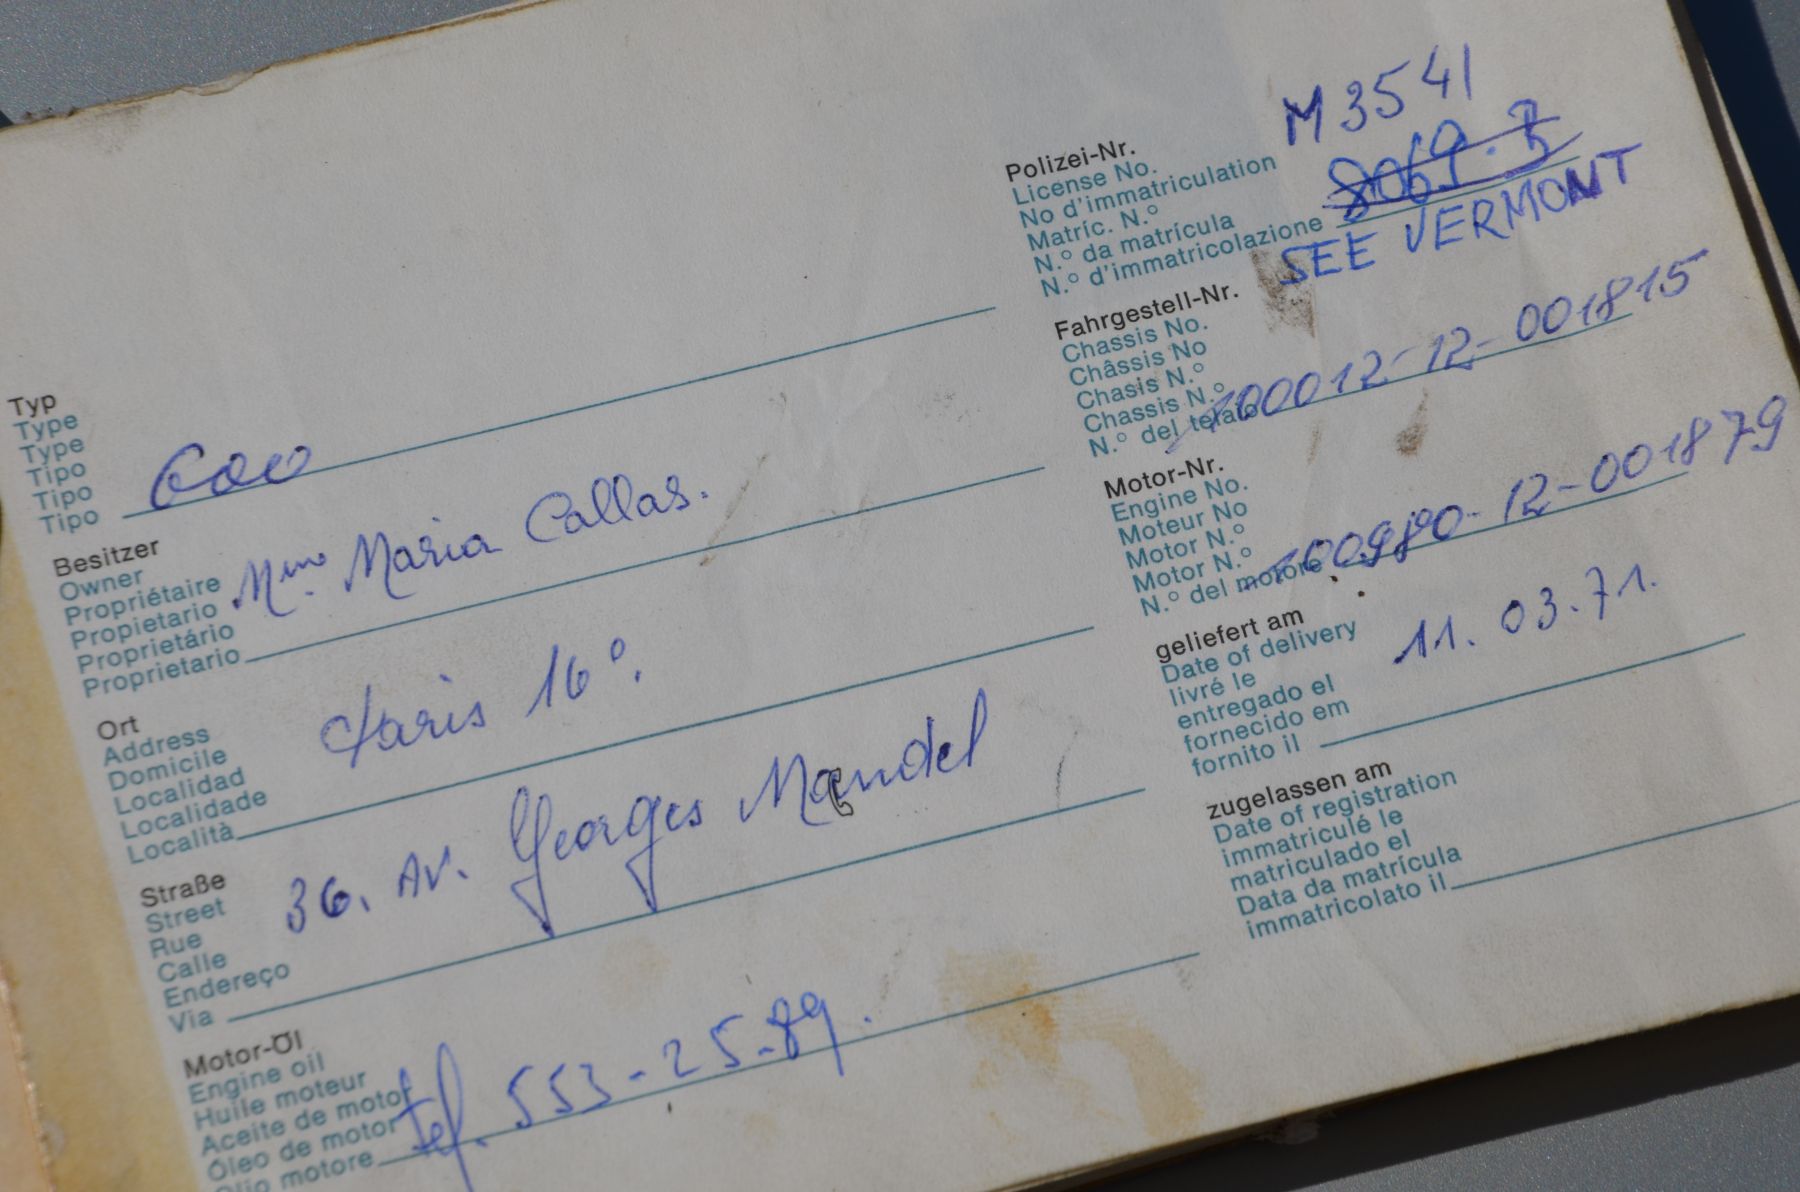 Typ
Type
Type
Tipo
Tipo
Tipo
600
Besitzer
Owner
Propriétaire
Propietario
Proprietário
Proprietario
Mme. Maria Callas.
Ort
Address
Domicile
Localidad
Localidade
Località
Paris 16º.
Straße
Street
Rue
Calle
Endereço
Via
36. AV. Georges Mandel
Motor-Öl
Engine oil
Huile moteur
Aceite de motor
Óleo de motor
Olio motore
tel. 553-25-89.
Polizei-Nr.
License No.
No d'immatriculation
Matríc. N.º
N.º da matrícula
N.º d'immatricolazione
M 3541
8069
SEE VERMONT
Fahrgestell-Nr.
Chassis No.
Châssis No
Chasis N.º
Chassis N.º
N.º del telaio
100012-12-001815
Motor-Nr.
Engine No.
Moteur No
Motor N.º
Motor N.º
N.º del motore
100980-12-001879
geliefert am
Date of delivery
livré le
entregado el
fornecido em
fornito il
11.03.71.
zugelassen am
Date of registration
immatriculé le
matriculado el
Data da matrícula
immatricolato il